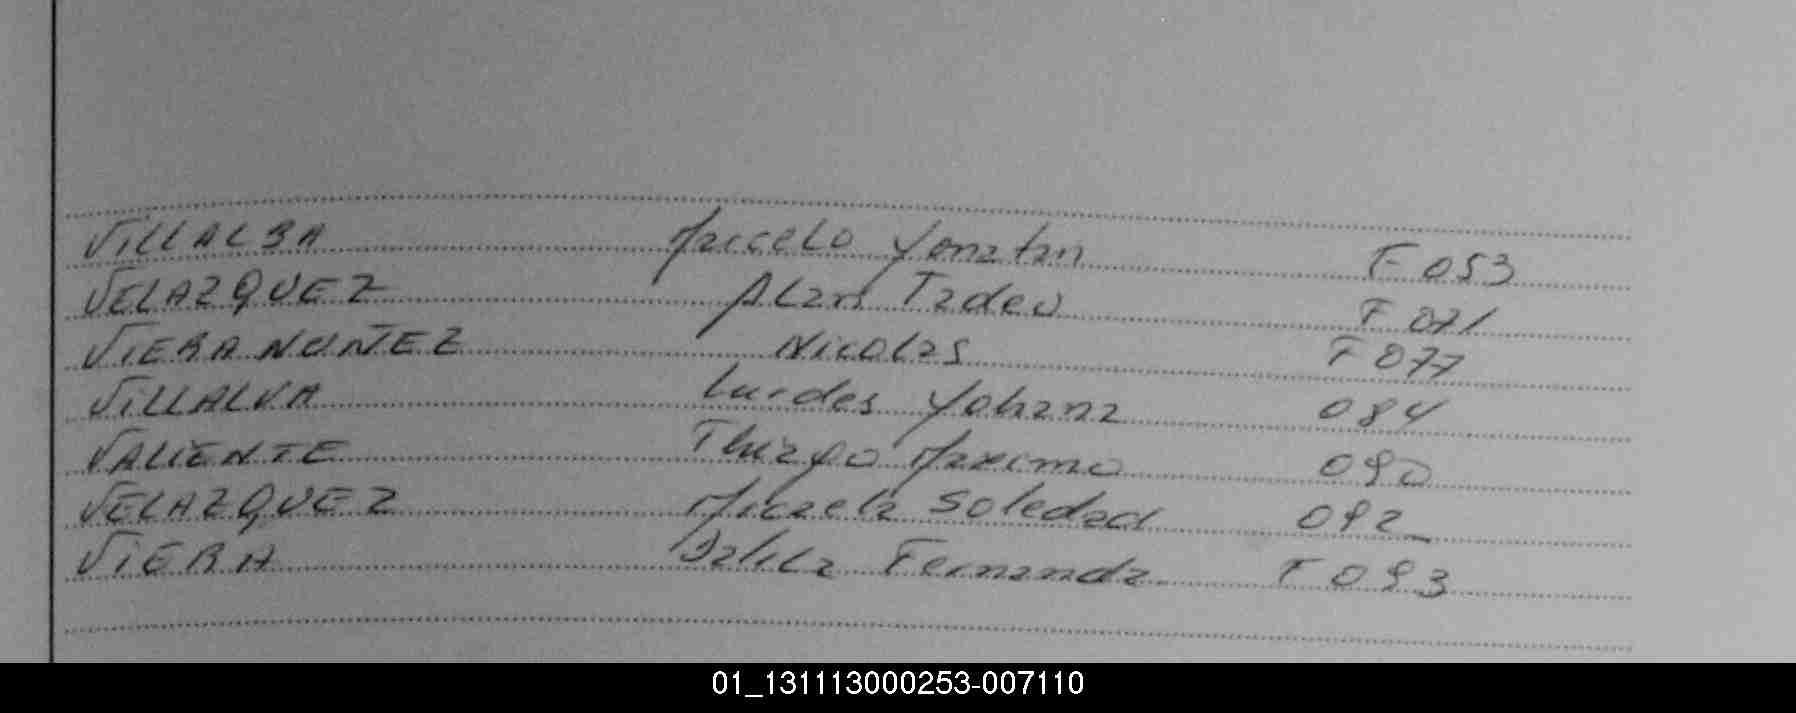 VILLALBA Marcelo Yonatan F 053
VELAZQUEZ Alan Tadeo F 071
VIERA NUÑEZ Nicolas F 077
VILLALVA Lurdes Yohana 084
VALIENTE Thiago Maximo 090
VELAZQUEZ Micaela Soledad 092
VIERA Dalila Fernanda F 093
01_131113000253-007110